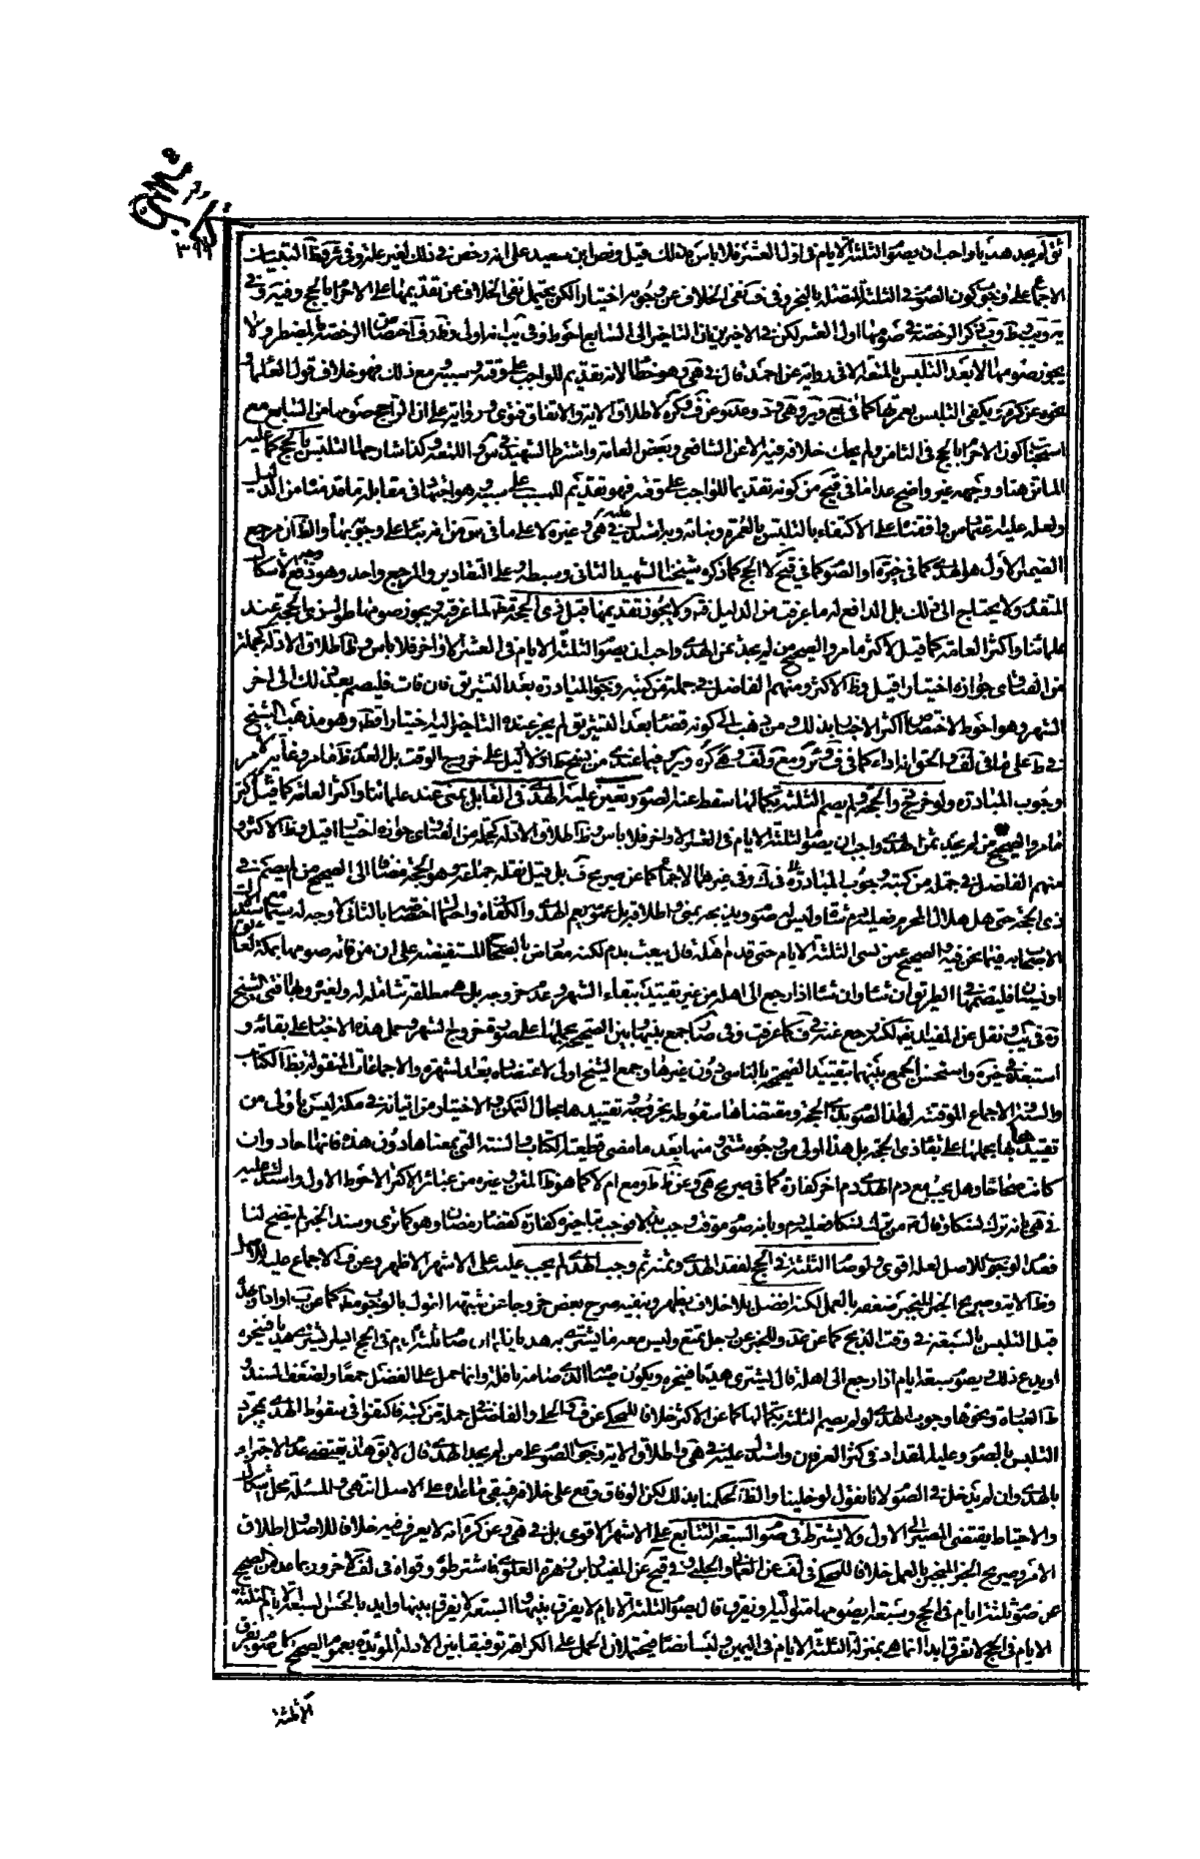 كتاب الحج
٣٩٩
ثق لم يجد هديا واحب ان يصوم الثلثة الايام فى اول العشر فلا باس بذلك قيل ونص ابن سعيد على انه رخص فى ذلك لغير علة وفى
الاجماع على وجوب كون الصوم فى الثلثة المتصلة بالنحر وفى ف نفى الخلاف عن وجوبه اختيارا لكن يحتمل نفى الخلاف عن تقديمها على الاحرام بالحج وفيه وفى
ير ويب وط ذكر الرخصة فى صومها اول العشر لكن فى الاخيرين ان التاخير الى السابع احوط وفى اولى وظ اختصاص الرخصة بالمضطر ولا
يجوز صومها الا بعد التلبس بالمتعة الا فى رواية عن احمد قال فى هى وهو خطا لانه تقديم للواجب على وقته وسببه ومع ذلك فهو خلاف قول العلماء و
نحوه عن كره يكفى التلبس بعمرتها كما فى يع وير وهى وعن ف وكره لاطلاق الاية والاتفاق فتوى ورواية على ان الراجح صومها من السابع مع
استحباب كون الاحرام بالحج فى الثامن ولم يحك خلاف فيه الا عن الشافعى وبعض العامة واشترط الشهيد فى س حج التمتع وكذا شارحها التلبس بالحج كما عليه
الماتن هنا ووجهه غير واضح عدا ما فى قيح من كونه تقديما للواجب على وقته فهو تقديم للمسبب على سببه وهو اجتهاد فى مقابلة ما قدمنا من الدليل
ولعله عليه من وافقنا على الاكتفاء بالتلبس بالعمرة وبانه وبه استدل عليه فى هى وغيره لا على ما فى من انه بناء على وجوبها والظ ان مرجع
الضمير الاول هو الهدى كما فى خيرة او الصوم كما فى قيح لا الحج كما ذكره شيخنا الشهيد الثانى وسبطه وعلى التقادير والمرجع واحد وهو دفع الاشكال
المتقدم ولا يحتاج الى ذلك بل الدافع له ما عرفت من الدليل فته ولا يجوز تقديمها قبل ذى الحجة قطعا لما عرفته ويجوز صومها طول ذى الحجة عند
علمائنا واكثر العامة كما قيل لاكثر ما مر والصحيح من لم يجد ثمن الهدى واحب ان يصوم الثلثة الايام فى العشر الاواخر فلا باس وظ اطلاق الادلة كجملة
من الفتاوى جوازه اختيارا قيل وظ الاكثر ومنهم الفاضل فى جملة من كتبه وجوب المبادرة بعد التشريق فان فات فليصم بعد ذلك الى اخر
الشهر وهو احوط لاختصاص اكثر الاخبار بذلك ومن ذهب الى كونه قضاء بعد التشريق لم يجز عنده التاخير اليه اختيارا قطعا وهو مذهب الشيخ
فى ط على ما فى لف والحق انه اداء كما فى ف وئر ومع ولف وهى كره وير فيما عندى من نسخة اذ لا دليل على خروج الوقت بل العدم ظ مما مر وغاية الامر
وجوب المبادرة ولو خرج ذو الحجة ولم يصم الثلثة بكمالها سقط عنه الصوم وتعين عليه الهدى فى القابل بمنى عند علمائنا واكثر العامة كما قيل لاكثر
ما مر والصحيح من لم يجد ثمن الهدى واحب ان يصوم الثلثة الايام فى العشر الاواخر فلا باس وظ اطلاق الادلة كجملة من الفتاوى جوازه اختيارا قيل وظ الاكثر و
منهم الفاضل فى جملة من كتبه وجوب المبادرة وفى غيرهما الاجماع كما عن صريح ف بل قيل نقله جماعة وهو الحجة مضافا الى الصحيح من لم يصم فى
ذى الحجة حتى هل هلال المحرم فعليه دم شاة وليس له صوم ويذبحه بمنى واطلاقه بل عمومه يعم الهدى والكفارة واحتمال اختصاصه بالثانى لا وجه له سيما مع استدلال
الاصحاب به فيما نحن فيه والصحيح عمن نسى الثلثة الايام حتى قدم اهله قال يبعث بدم لكنه معارض بالصحاح المستفيضة على ان من فاته صومها بمكة لعائق
او نسيان فليصمها فى الطريق ان شاء وان شاء اذا رجع الى اهله من غير تقييد ببقاء الشهر وعدم خروجه بل هى مطلقة شاملة له ولغيره وبها افتى الشيخ
ره فى يب ونقل عن المفيد ايضا لكنه رجع عنه فى ف كما عرفت وفى صا جمع بينها وبين الصحيح بحملها على صورة خروج الشهر وحمل هذه الاخبار على بقائه و
استبعده فى خيرة واستحسن الجمع بينهما بتقييد الصحيحة بالناسى دون غيرها وجمع الشيخ اولى لاعتضاده بعد الشهرة والاجماعات المنقولة بظ الكتاب
والسنة والاجماع الموقتة لهذا الصوم بذى الحجة ومقتضاها سقوطه بخروجه وتقييدها بحال التمكن والاختيار من اتيانه فى مكة ليس باولى من
تقييدها بحملها على بقاء ذى الحجة بل هذا اولى من وجوه شتى ومنها بعد ما مضى قطعية الكتاب والسنة التى بمعناها دون هذه فانها احاد وان
كانت صحاحا وهل يجب مع دم الهدى دم اخر كفارة كما فى صريح هى وعن ظ ط ومع ام لا كما هو ظ المتن وغيره من عبائر الاكثر الاحوط الاول واستدل عليه
فى هى بانه ترك نسكا وقال من ترك نسكا فعليه دم وبانه صوم موقت وجب بدلا فوجب بتاخيره كفارة كقضاء رمضان وهو كما ترى وسند الخبر لم يتضح لنا
فعدم الوجوب للاصل لعله اقوى ولو صام الثلثة فى الحج لفقد الهدى وثمنه ثم وجد الهدى لم يجب عليه على الاشهر الاظهر وعن ف الاجماع عليه للاصل
وظ الاية وصريح الخبر المنجبر ضعفه بالعمل لكنه افضل بلا خلاف يظهر وبنفيه صرح بعض خروجا عن شبهة القول بالوجوب مط كما عن ب او اذا وجد
قبل التلبس بالسبعة فى وقت الذبح كما عن عد وللخبر عن رجل تمتع وليس معه ما يشترى به هديا فلما ان صام ثلثة ايام فى الحج ايسر ايشترى هديا فينحره
او يدع ذلك ويصوم سبعة ايام اذا رجع الى اهله قال يشترى هديا فينحره ويكون صيامه الذى صامه نافلة وانما حمل على الفضل جمعا ولضعف السند و
ظ العبارة ونحوها وجوب الهدى لو لم يصم الثلثة بكمالها كما عن الاكثر خلافا للمحكى عن ف والحلى والفاضل فى جملة من كتبه فاكتفوا فى سقوط الهدى بمجرد
التلبس بالصوم وعليه المقداد فى كنز العرفان واستدل عليه فى هى واطلاق الاية وجوب الصوم على من لم يجد الهدى قال لا يق هذا يقتضى عدم الاجتزاء
بالهدى وان لم يدخل فى الصوم لانا نقول لو خلينا والظ لحكمنا بذلك لكن الوفاق وقع على خلافه فيبقى ما عداه على الاصل انتهى والمسئلة محل اشكال
والاحتياط يقتضى المصير الى الاول ولا يشترط فى صوم السبعة التتابع على الاشهر الاقوى بل فى هى وعن كره انه لا يعرف فيه خلاف للاصل واطلاق
الامر وصريح الخبر المنجبر بالعمل خلافا للمحكى فى لف عن العمانى والحلبى وفى قيح عن المفيد وابن زهرة العلوى فاشترطوه وقواه فى لف لاخرون بما عدا الصحيح
عن صوم ثلثة ايام فى الحج وسبعة ايصومها متوالية او يفرق قال يصوم الثلثة الايام لا يفرق بينها والسبعة لا يفرق بينها وايد بالحسن السبعة الايام والثلثة
الايام فى الحج لا تفرق ايدا انما هى بمنزلة الثلثة الايام فى اليمين وليسا نصا فيحتملان الحمل على الكراهة توفيقا بين الادلة المؤيدة بعموم الصحيح كل صوم يفرق
الا ثلثة